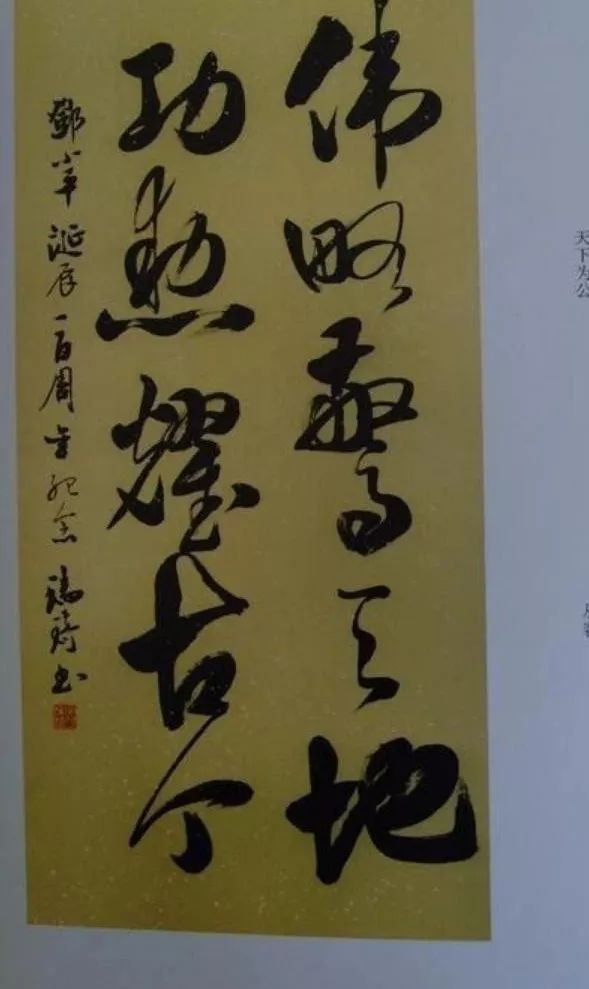 伟略驚天地
功勲耀古今
鄧小平诞辰一百周年纪念 书
天下为公